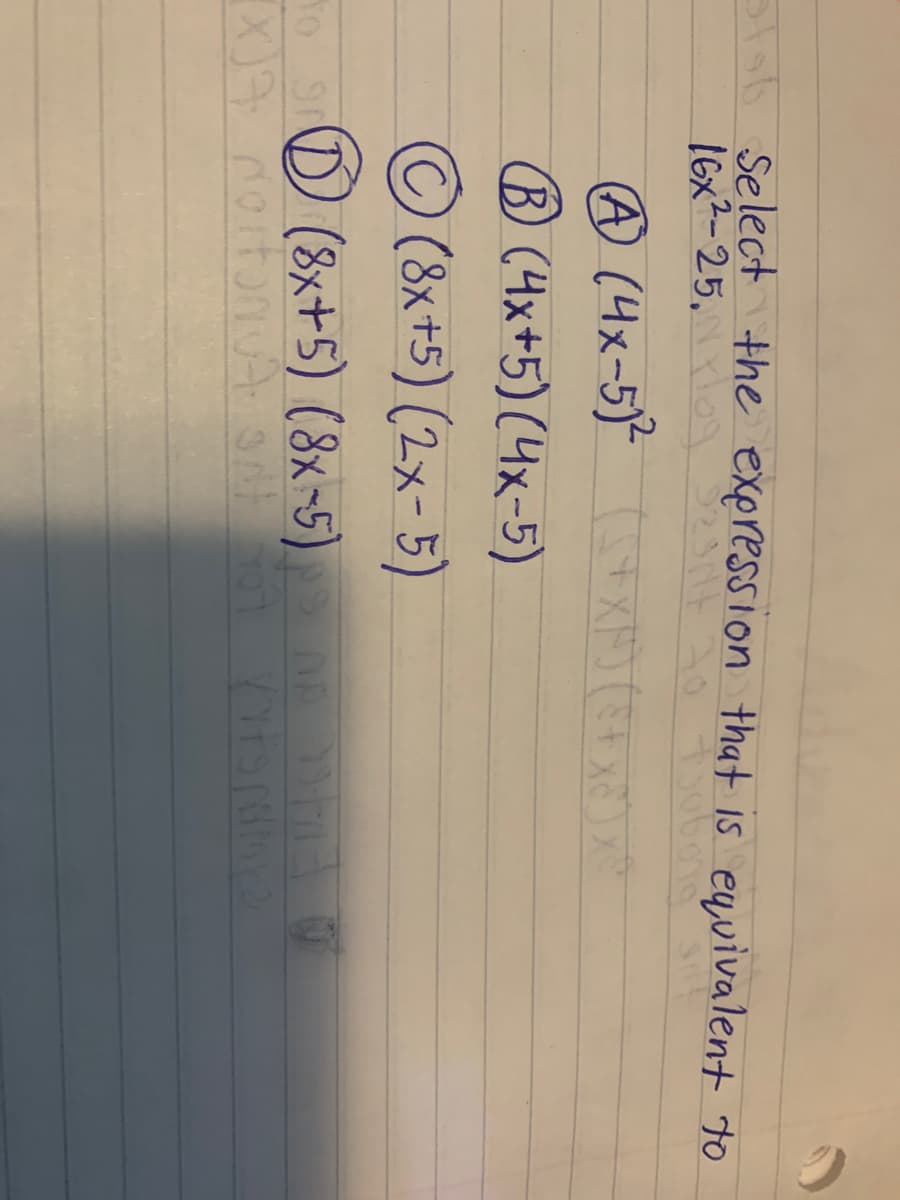 Select the expression that is equivalent to
16x²-25.
Ⓐ (4x-5)²
Ⓑ (4x+5)(4x-5)
Ⓒ (8x+5)(2x-5)
Ⓓ (8x+5)(8x-5)